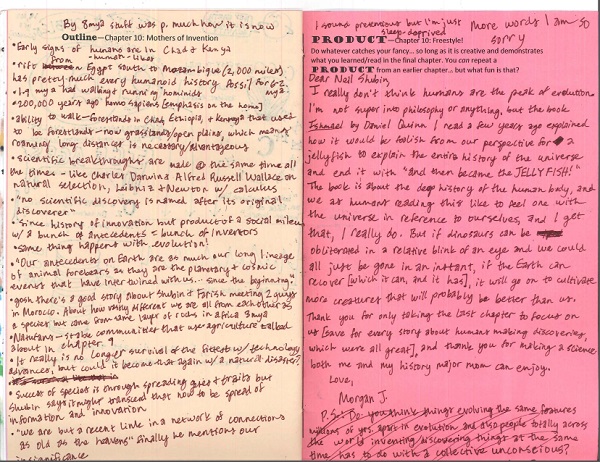 By 3mya stuff was p. much how it is now
Outline—Chapter 10: Mothers of Invention
• Early signs of humans are in Chad & Kenya
• rift from Egypt south to Mozambique (2,000 miles)
has pretty much every humanoid history fossil for 6-2
human-like
mya
200,000 years ago homo sapiens (emphasis on the homo)
• ability to walk - forestlands in Chad, Ethiopia, & Kenya that used
to be forestlands - now grasslands/open plains, which means
roaming long distances is necessary/advantageous
• scientific breakthroughs are made @ the same time all
the times - like Charles Darwin & Alfred Russell Wallace on
natural selection, Leibniz & Newton w/ calculus
• "no scientific discovery is named after its original
discoverer"
• Since history of innovation but product of a social milieu
w/ a bunch of antecedents = bunch of inventors
• same thing happens with evolution!
• "Our antecedents on Earth are as much our long lineage
of animal forebears as they are the planetary & cosmic
events that have intertwined with us... since the beginning".
• gosh there's a good story about Shubin & Farish meeting 2 guys
in Morocco. About how vastly different we are all from each other as
a species but come from same layer of rock in africa 3mya
• Natufians - stable communities that use agriculture talked
about in chapter 9
• It really is no longer survival of the fittest w/ technology
advances, but could it become that again w/ a natural disaster?
• Success of species is through spreading genes & traits but
Shubin says it might transcend that now to be spread of
information and innovation
• "we are but a recent link in a network of connections
as old as the heavens" finally he mentions our
insignificance
I sound pretentious but I'm just
sleep-deprived
More words I am so
sorry
PRODUCT—Chapter 10: Freestyle!
Do whatever catches your fancy... so long as it is creative and demonstrates
what you learned/read in the final chapter. You can repeat a
PRODUCT from an earlier chapter... but what fun is that?
Dear Neil Shubin,
I really don't think humans are the peak of evolution.
I'm not super into philosophy or anything, but the book
Ishmael by Daniel Quinn I read a few years ago explained
how it would be foolish from our perspective for a
jellyfish to explain the entire history of the universe
and end it with "and then became the JELLYFISH!"
The book is about the deep history of the human body, and
we as humans reading this like to feel one with
the universe in reference to ourselves, and I get
that, I really do. But if dinosaurs can be
obliterated in a relative blink of an eye and we could
all just be gone in an instant, if the Earth can
recover [which it can, and it has], it will go on to cultivate
more creatures that will probably be better than us.
Thank you for only taking the last chapter to focus on
us [save for every story about human making discovering,
which were all great], and thank you for making a science
both me and my history major mom can enjoy.
Love,
Morgan J
P.S: Do you think things evolving the same features
millions of yrs. apart in evolution, and also people totally across
the world inventing/discovering things at the same
time has to do with a collective unconscious?